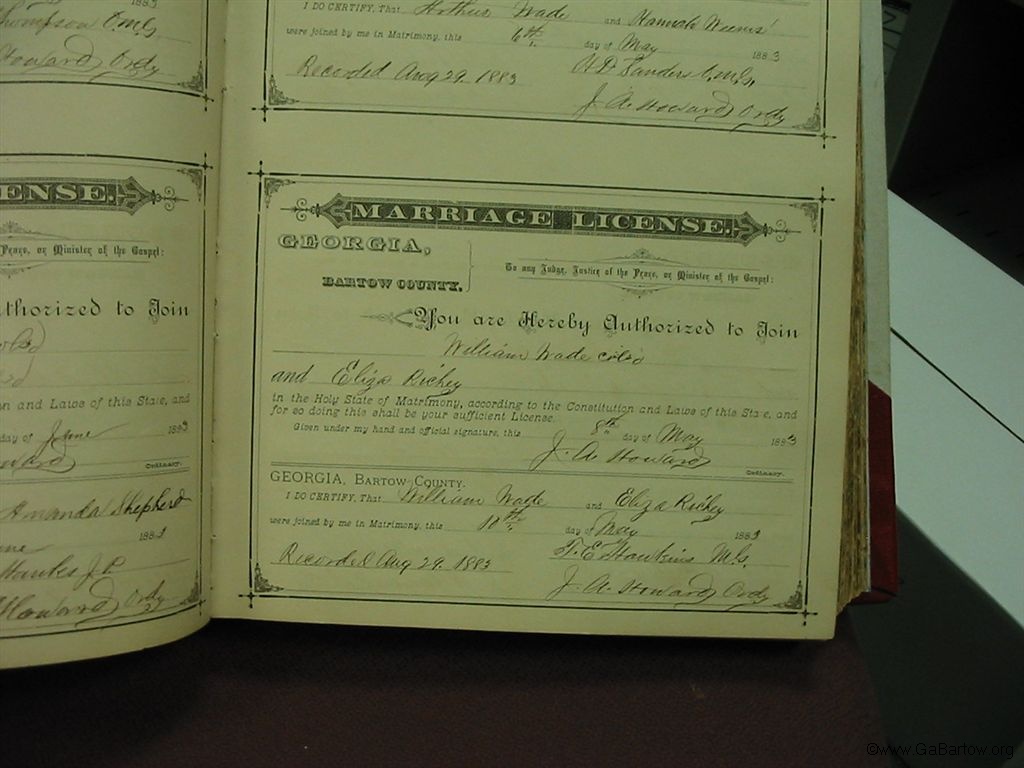 1883
Thompson C.M.G.
Howard Ordy
ENSE.
Peace, or Minister of the Gospel:
thorized to Join
on and Laws of this State, and
day of June 1883
Howard
Ordinary.
Amanda Shepherd
1883
Hawks J.P.
Howard Ordy
I DO CERTIFY, That Arthur Wade and Hannah Weems
were joined by me in Matrimony, this 6th day of May 1883
Recorded Aug 29. 1883
Sanders
J. A. Howard Ordy
MARRIAGE LICENSE.
GEORGIA,
BARTOW COUNTY.
To any Judge, Justice of the Peace, or Minister of the Gospel:
You are Hereby Authorized to Join
William Wade cold
and Eliza Richey
in the Holy State of Matrimony, according to the Constitution and Laws of this State, and
for so doing this shall be your sufficient License.
Given under my hand and official signature, this 8th day of May 1883
J. A. Howard
Ordinary.
GEORGIA, BARTOW COUNTY.
I DO CERTIFY, That William Wade and Eliza Richey
were joined by me in Matrimony, this 10th day of May 1883
Recorded Aug 29. 1883
T. E. Hawkins M.G.
J. A. Howard Ordy
©www.GaBartow.org